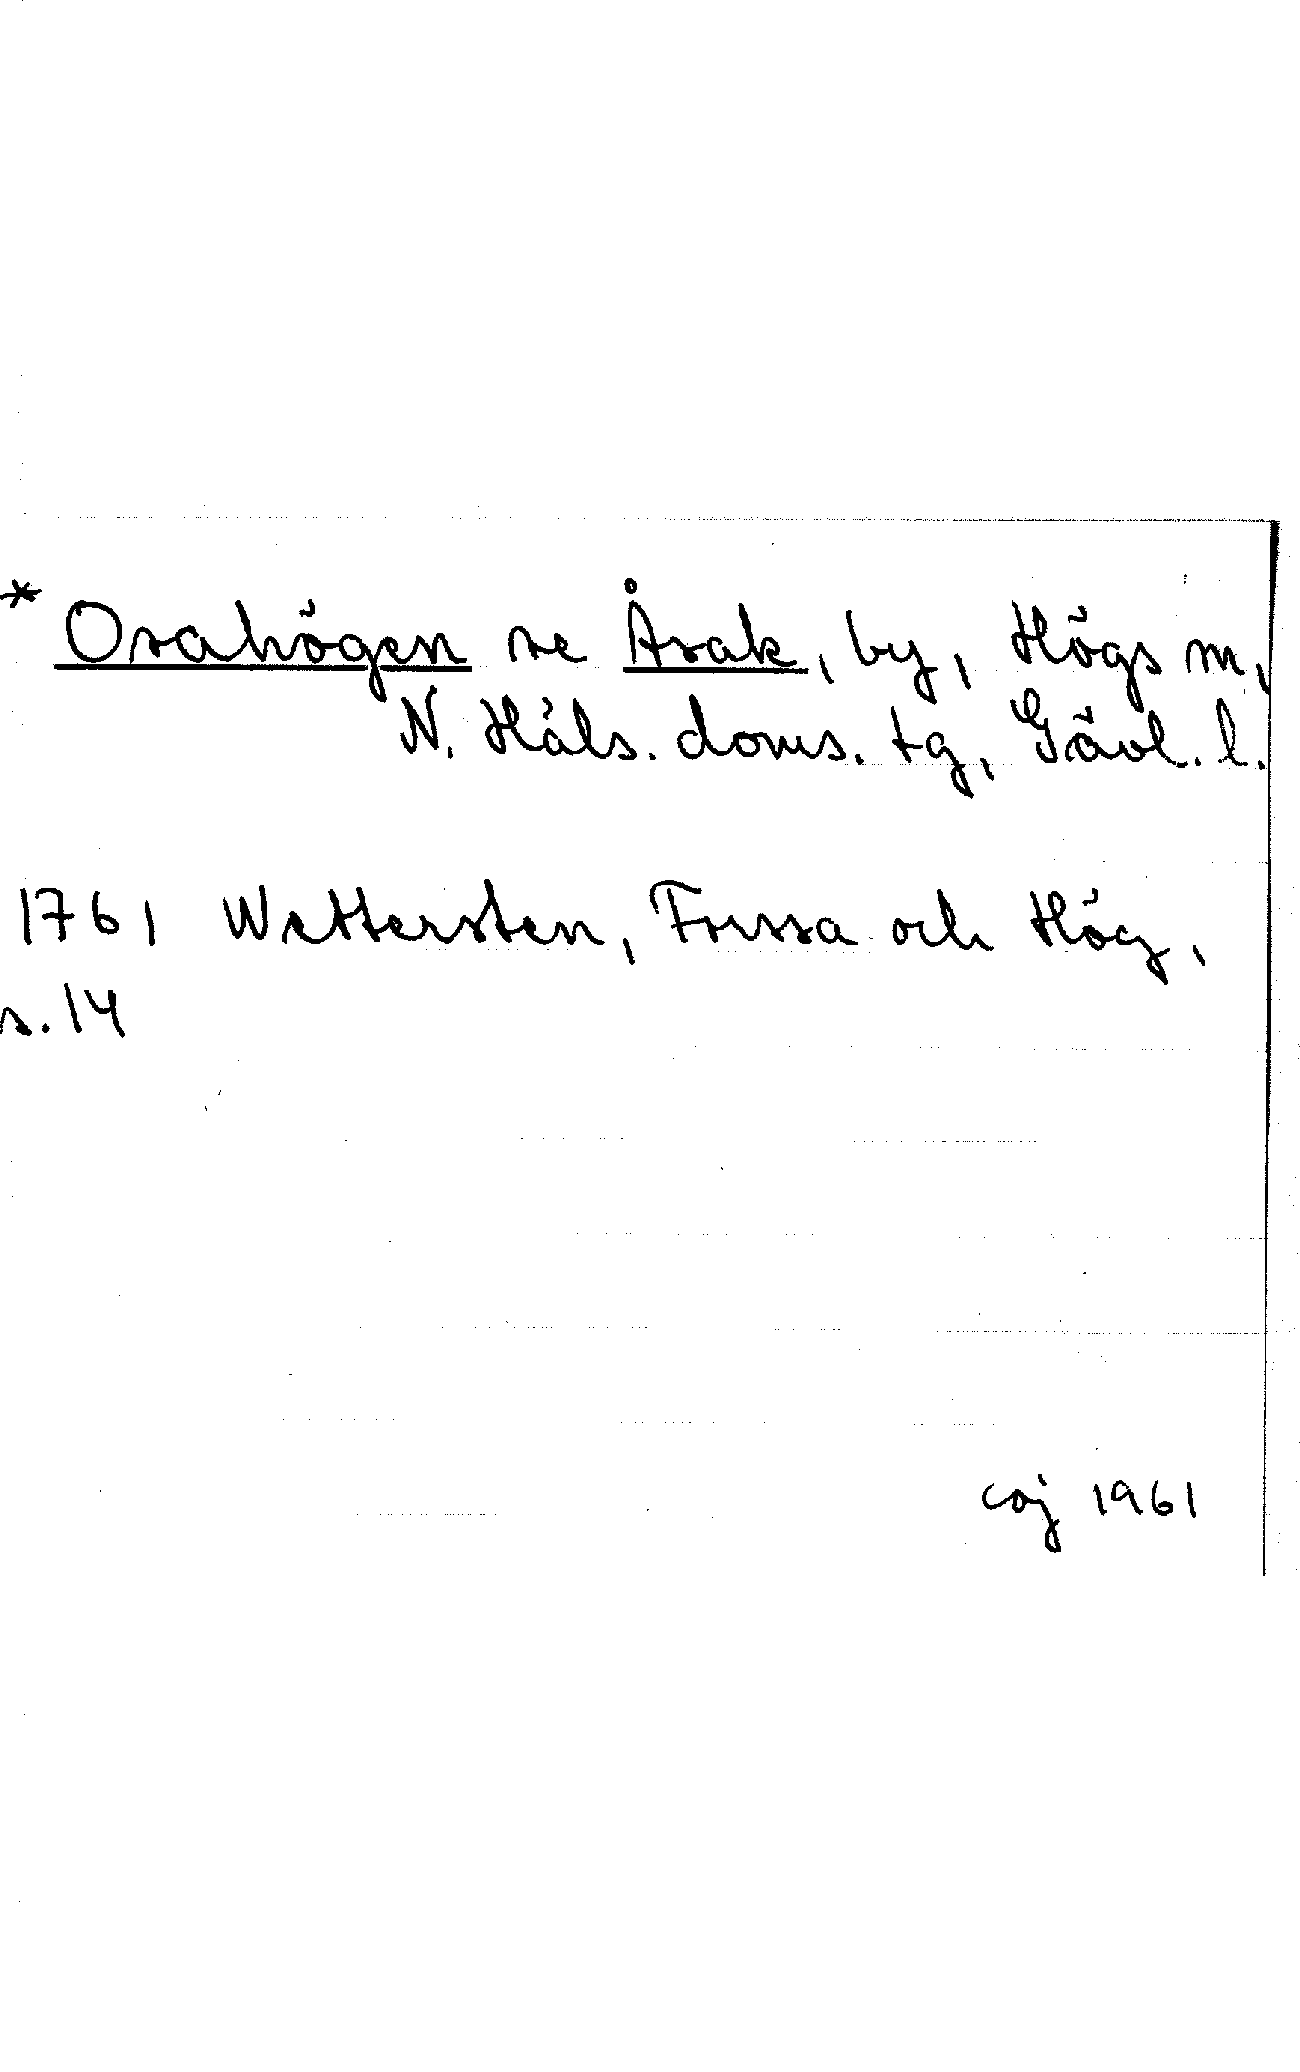 * Osahögen se Åsak, by, Högs sn,
N. Häls. doms. tg, Gävl. l.
1761 Wettersten, Forssa och Hög,
s. 14
coj 1961